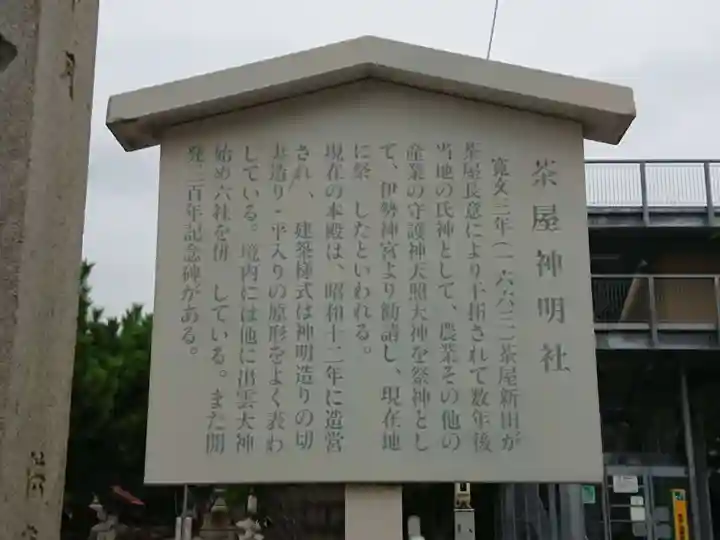 茶屋神明社
寛文三年(一六六三)茶屋新田が
茶屋長意により干拓されて数年後
当地の氏神として、農業その他の
産業の守護神天照大神を祭神とし
て、伊勢神宮より勧請し、現在地
に祭 したといわれる。
現在の本殿は、昭和十二年に造営
され、 建築様式は神明造りの切
妻造り・平入りの原形をよく表わ
している。境内には他に出雲大神
始め六社を併 している。また開
発三百年記念碑がある。